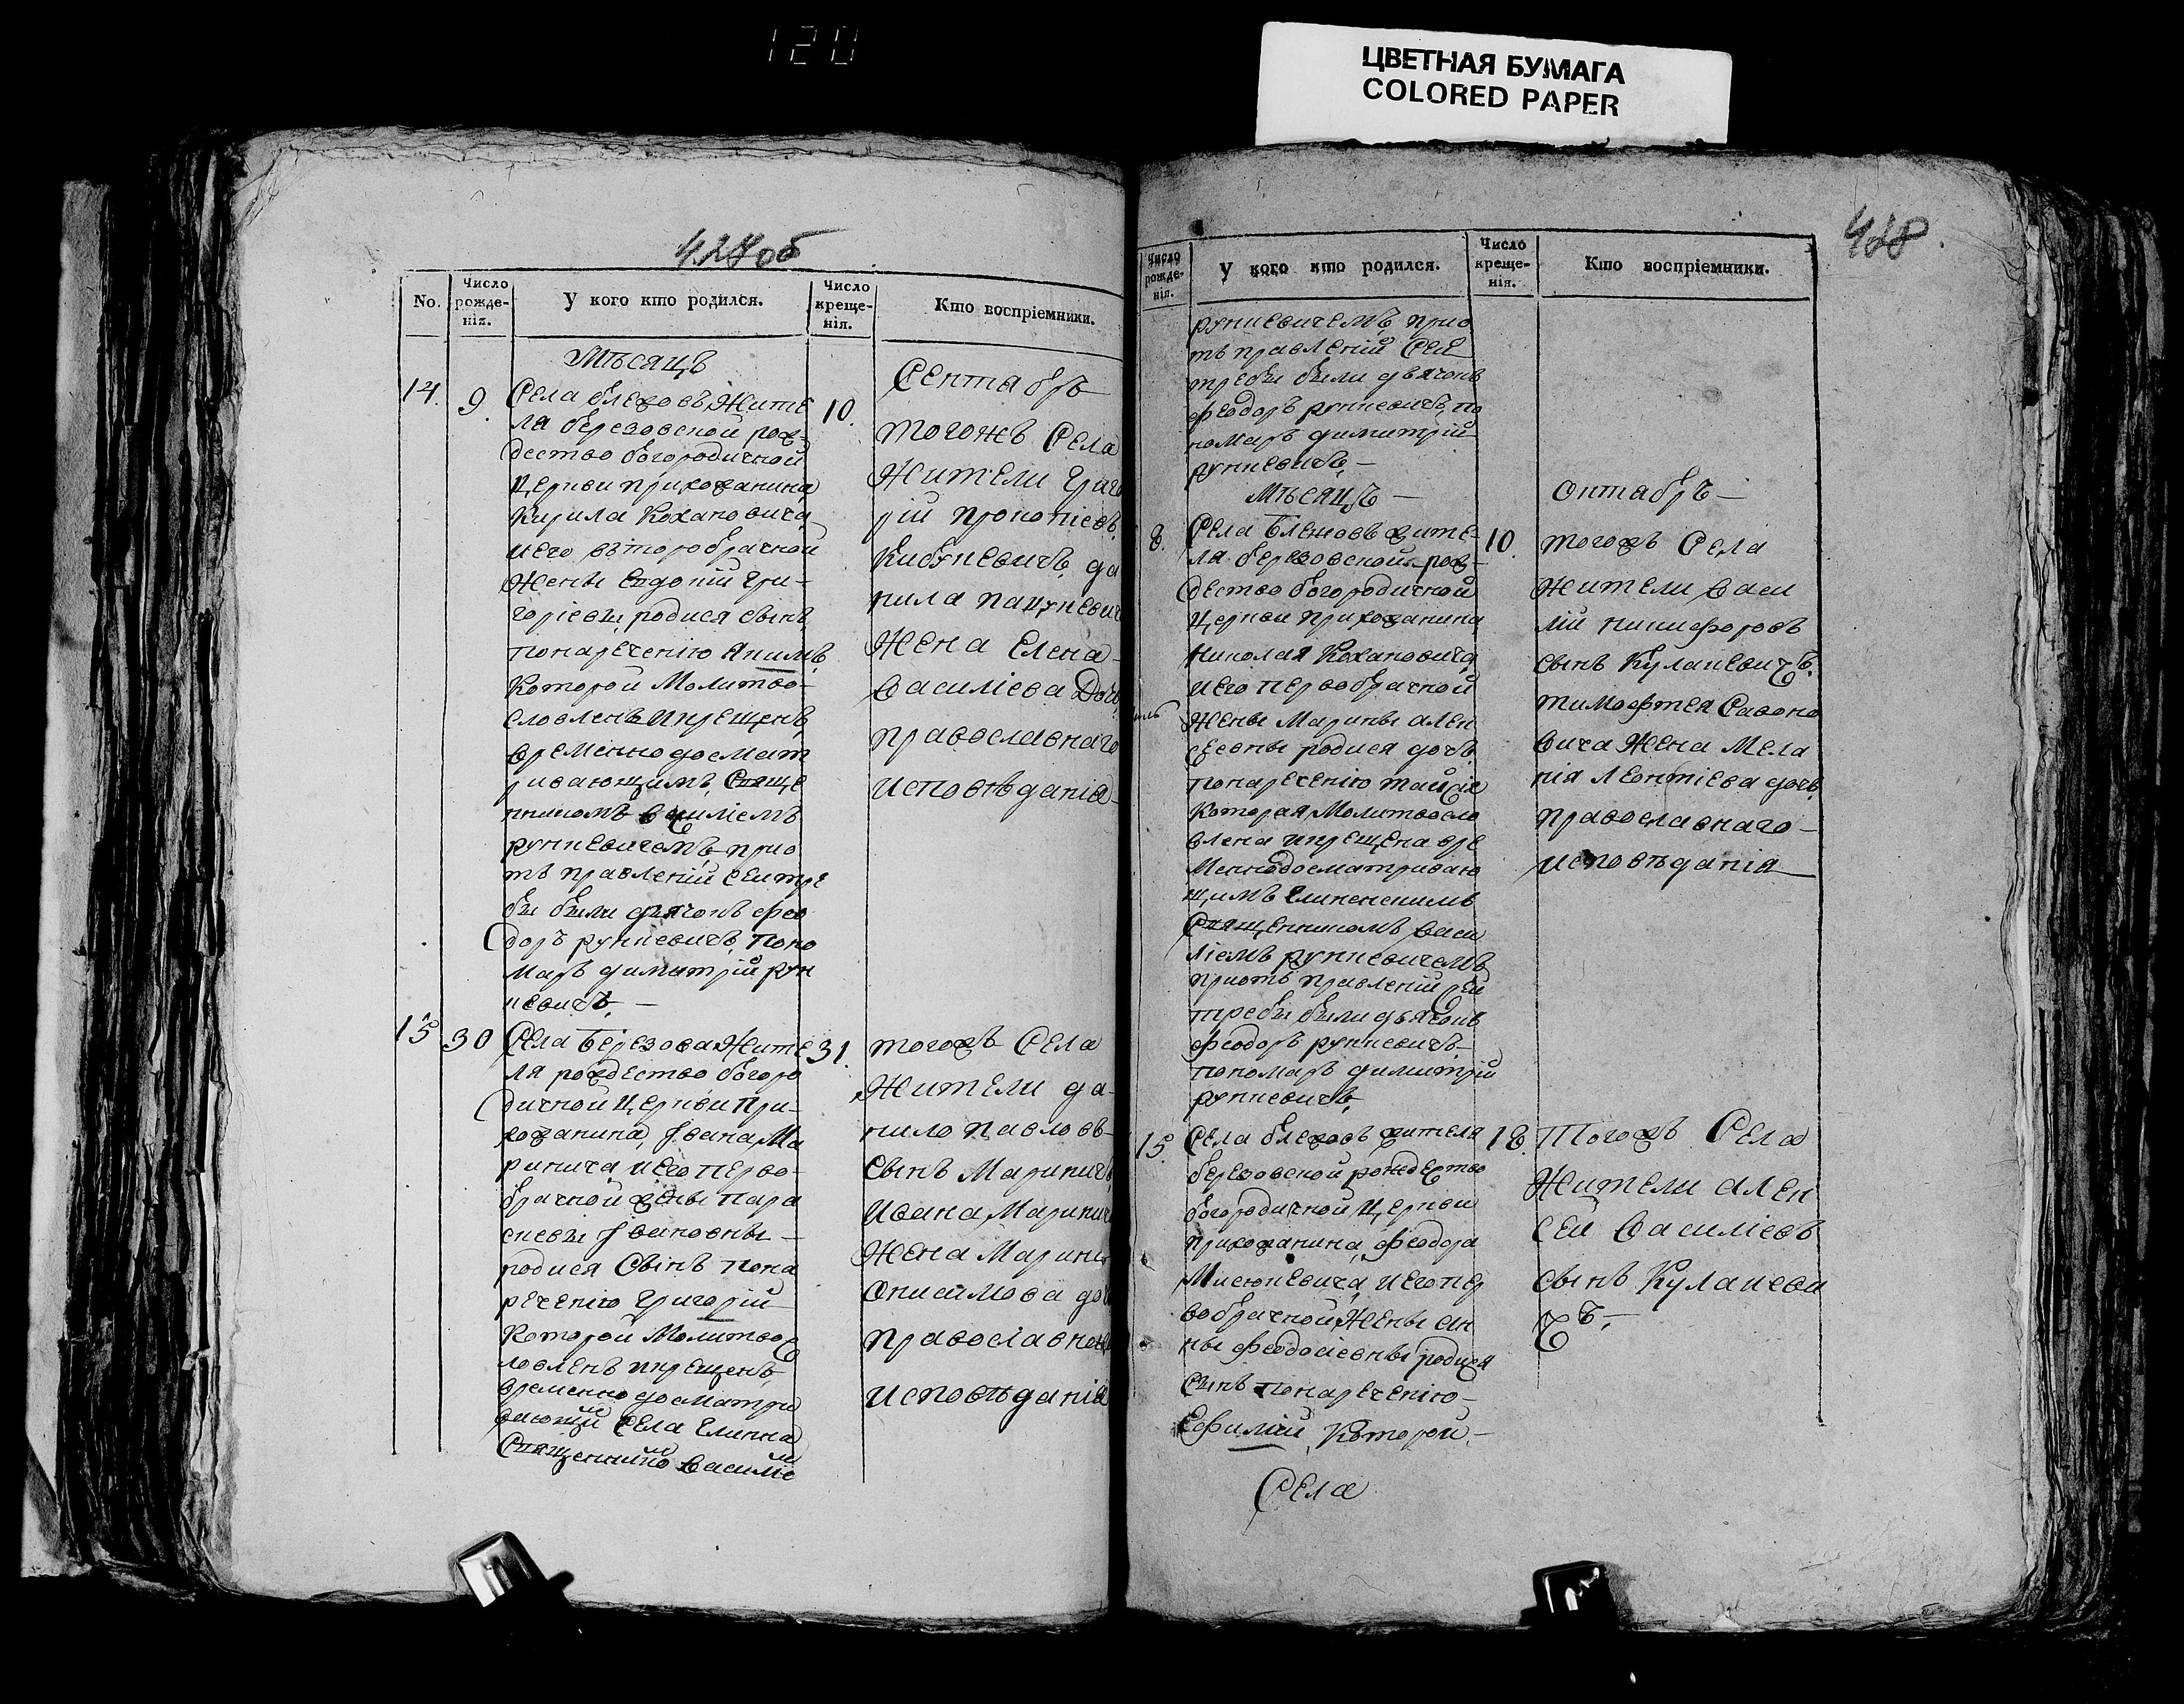 120
ЦВЕТНАЯ БУМАГА
COLORED PAPER
No.
Число рожде-нія.
У кого кто родился.
Число креще-нія.
Кто воспріемники.
Мѣсяцъ
Сентябрь
14.
9.
Села блежовъ Жите
ля березовской рож-
дество богородичной
Церкви прихожанина
Кирила Кохановича
и его второбрачной
Жены Евдокій Гри-
горіевы, родися сынъ
по наречению
Которой Молитво-
словленъ и крещенъ
временно досмат
ривающимъ, Свяще
нникомъ василіемъ
рункевичемъ, при о
тъ правленій сей тре
бы были дьячокъ фео
доръ рункевичъ, поно
марь димитрій рун
кевичъ. —
10.
тогожъ Села
Жители Григо
рій прокопіевъ
да
нила пацукевич
Жена Елена
василіева Дочь
православнаго
исповѣданія
15
30
Села Березова Жите
ля рождество богоро
дичной Церкви При-
хожанина, Ивана Ма
ринича, и его перво-
брачной жены пара
скевы Ивановны —
родися Сынъ по на
речению Григорій
Которой Молитвос
ловленъ и крещенъ,
временно досматри
вающимъ Села
Священникомъ василіе
31.
тогожъ Села
Жители да-
нило павловъ
Сынъ Маринич
Ивана Маринич
Жена Марина
Онисимова доч
православнаго
исповѣданія
428
Число рожде-нія.
У кого кто родился.
Число креще-нія.
Кто воспріемники.
рункевичемъ, при о
тъ правленій Сей
требы были дьячокъ
феодоръ рункевичъ, по
номарь димитрій
рункевичъ, —
Мѣсяцъ —
Октябрь —
8.
Села Блежовъ жите-
ля березовской рож-
дество богородичной
Церкви прихожанина
Николая Кохановича
и его первобрачной
Жены Марины Алек
сеевны родися дочь,
по наречению таисія
Которая Молитвосло
влена и крещена вре
менно досматриваю
щимъ
Священникомъ васи
ліемъ рункевичемъ
при отъ правленій сей
требы были дьячокъ
феодоръ рункевичъ —
пономарь димитрій
рункевичъ,
10.
тогожъ Села
Жители васи
лій никифоровъ
сынъ Кулакевичъ.
тимофтея Савоно
вича Жена Мела
нія леонтіева дочь,
православнаго —
исповѣданія
15.
Села блежовъ жителя
березовской рождество
богородичной Церкви
прихожанина, феодора
Мисюкевича, и его пер
вобрачной Жены ан
ны феодосіевны родися
Сынъ по наречению —
Ефимій, Которой. —
18.
Тогожъ Села
Жители Алек
сей василіевъ
сынъ Кулакеви
чъ. —
Села